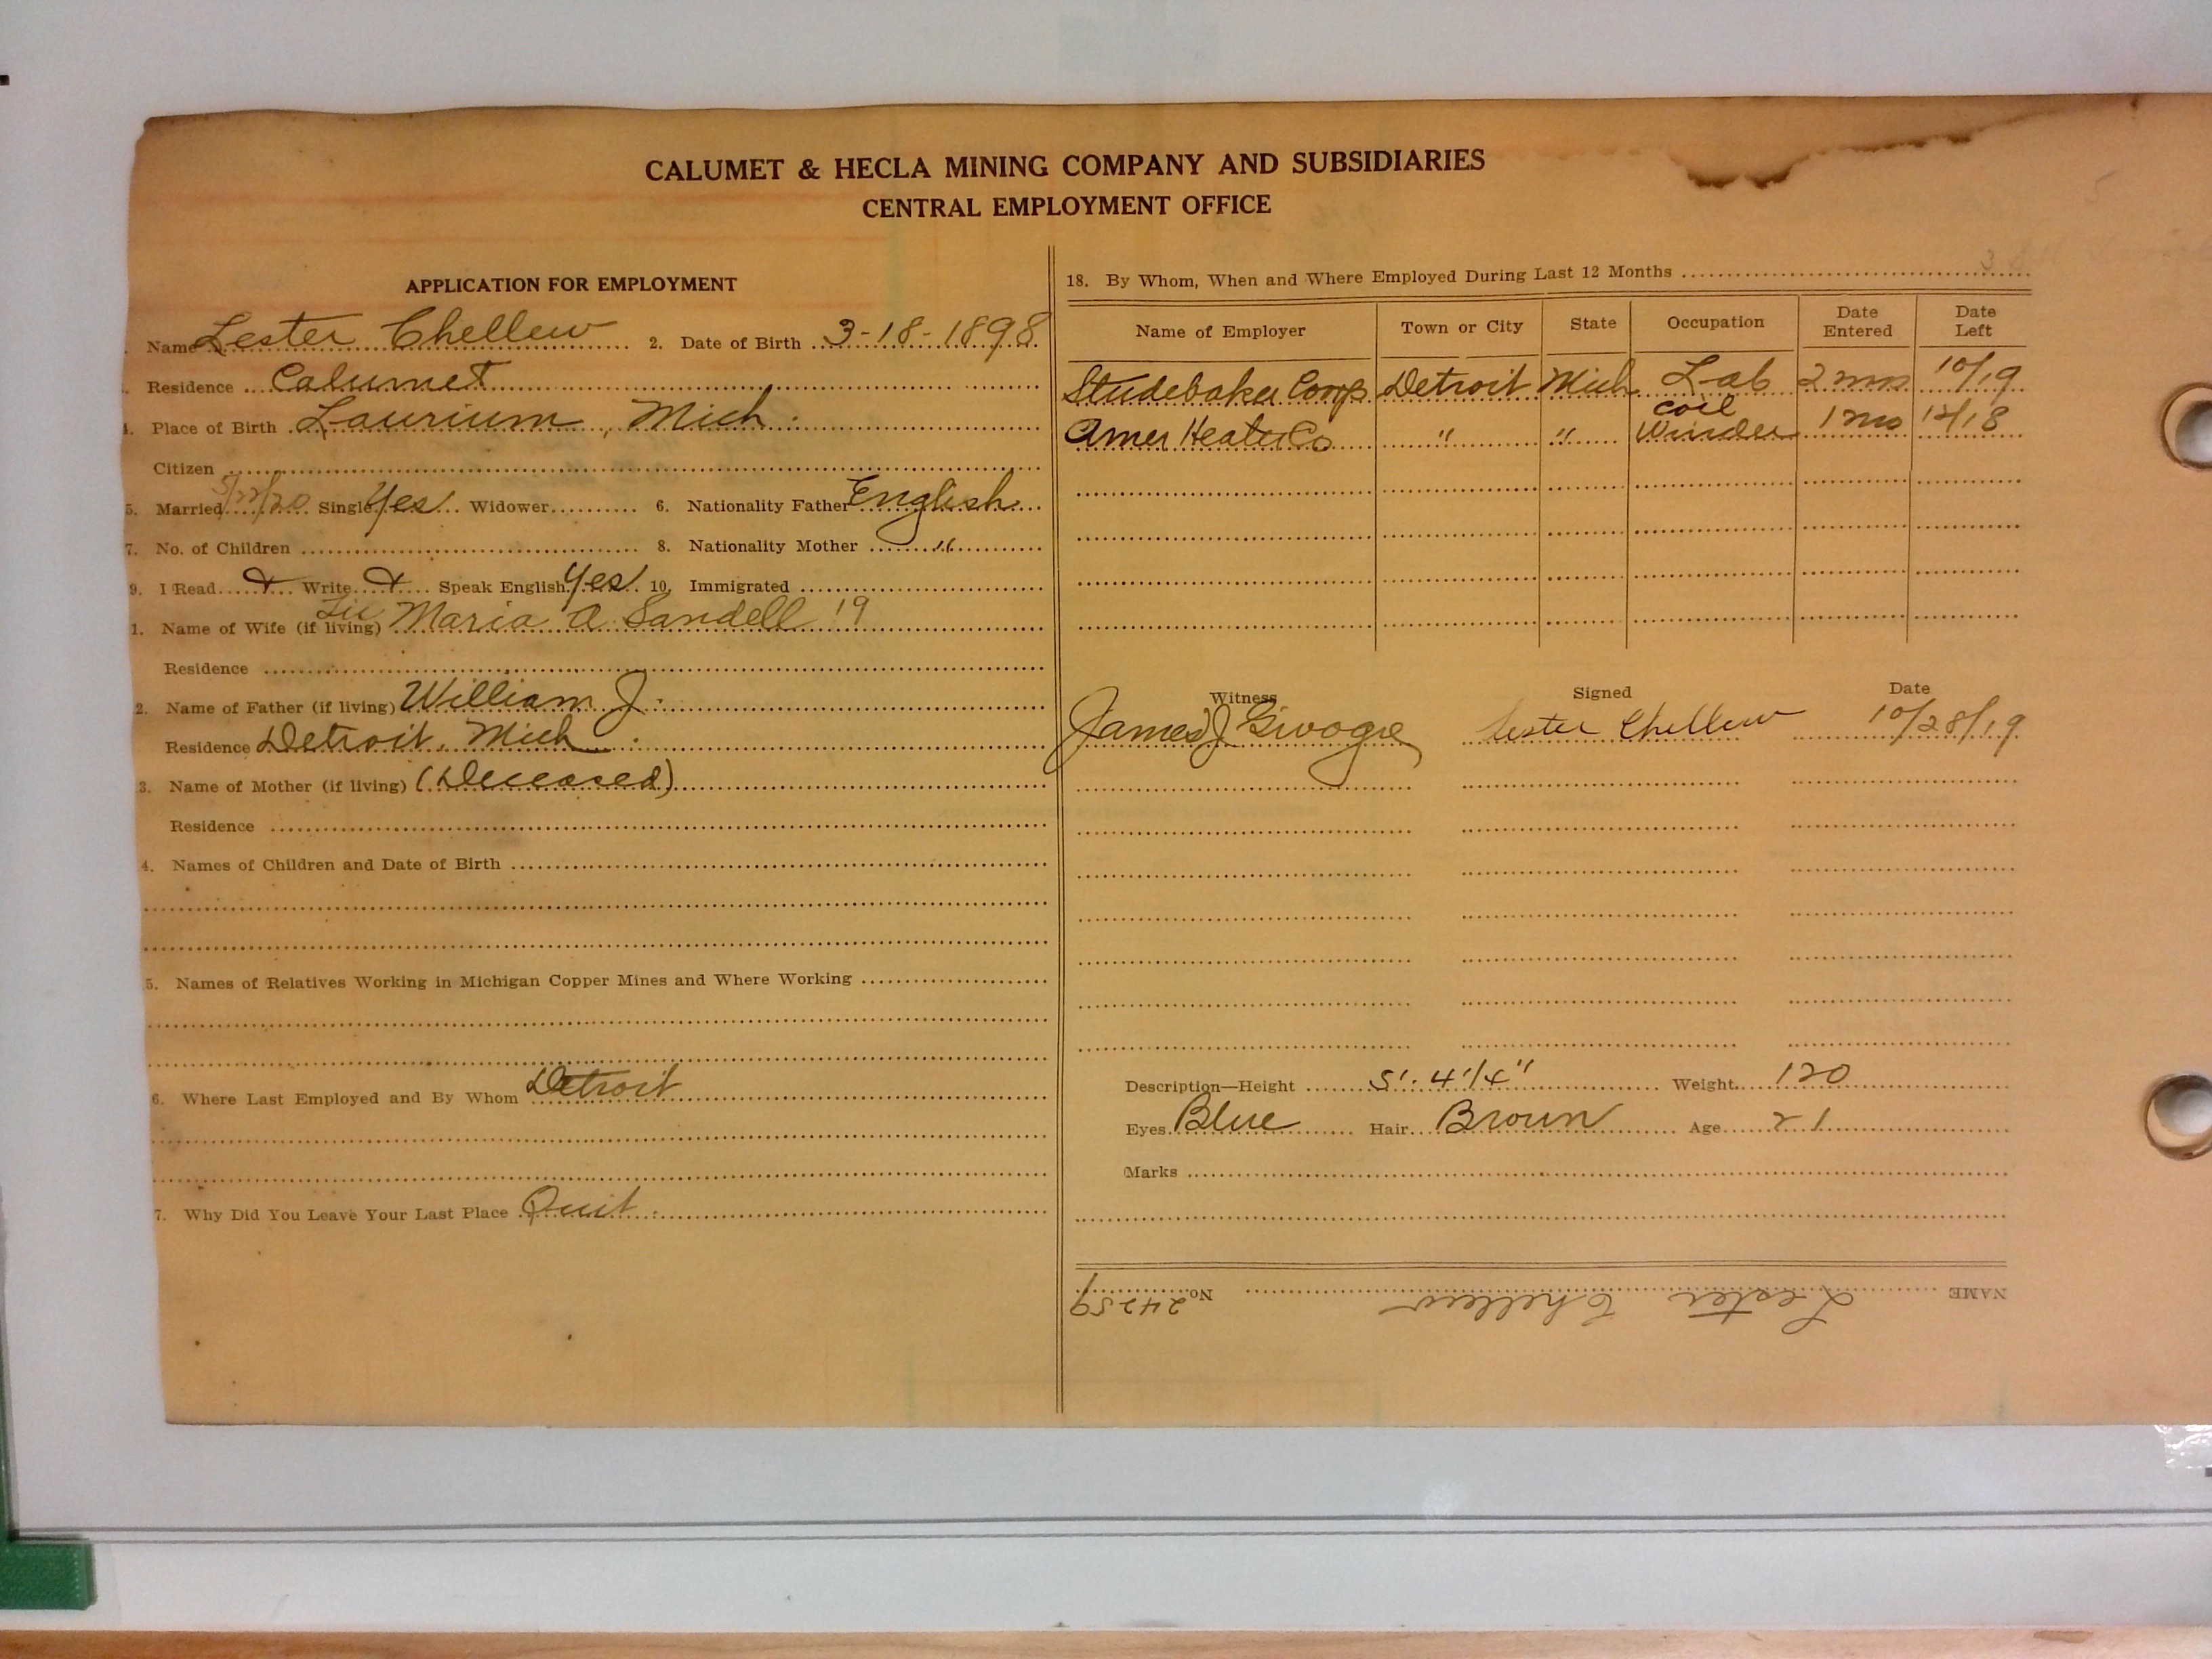 CALUMET & HECLA MINING COMPANY AND SUBSIDIARIES
CENTRAL EMPLOYMENT OFFICE
APPLICATION FOR EMPLOYMENT
Name Lester Chellew 2. Date of Birth 3-18-1898
Residence Calumet
4. Place of Birth Laurium, Mich.
Citizen
5. Married 5/22/20 Single Yes Widower 6. Nationality Father English
7. No. of Children 8. Nationality Mother "
9. I Read & Write & Speak English Yes 10. Immigrated
1. Name of Wife (if living) Maria A. Sandell 19
Residence
2. Name of Father (if living) William J.
Residence Detroit, Mich.
3. Name of Mother (if living) (Deceased)
Residence
4. Names of Children and Date of Birth
5. Names of Relatives Working in Michigan Copper Mines and Where Working
6. Where Last Employed and By Whom Detroit
7. Why Did You Leave Your Last Place Quit.
18. By Whom, When and Where Employed During Last 12 Months
Name of Employer Town or City State Occupation Date Entered Date Left
Studebaker Corp Detroit Mich. Lab 2 mos 10/19
Amer Heater Co " " Coil Winder 1 mo 12/18
Witness Signed Date
James J Lester Chellew 10/28/19
Description—Height 5'. 4 1/4" Weight 120
Eyes Blue Hair Brown Age 21
Marks
NAME Lester Chellew No. 24259